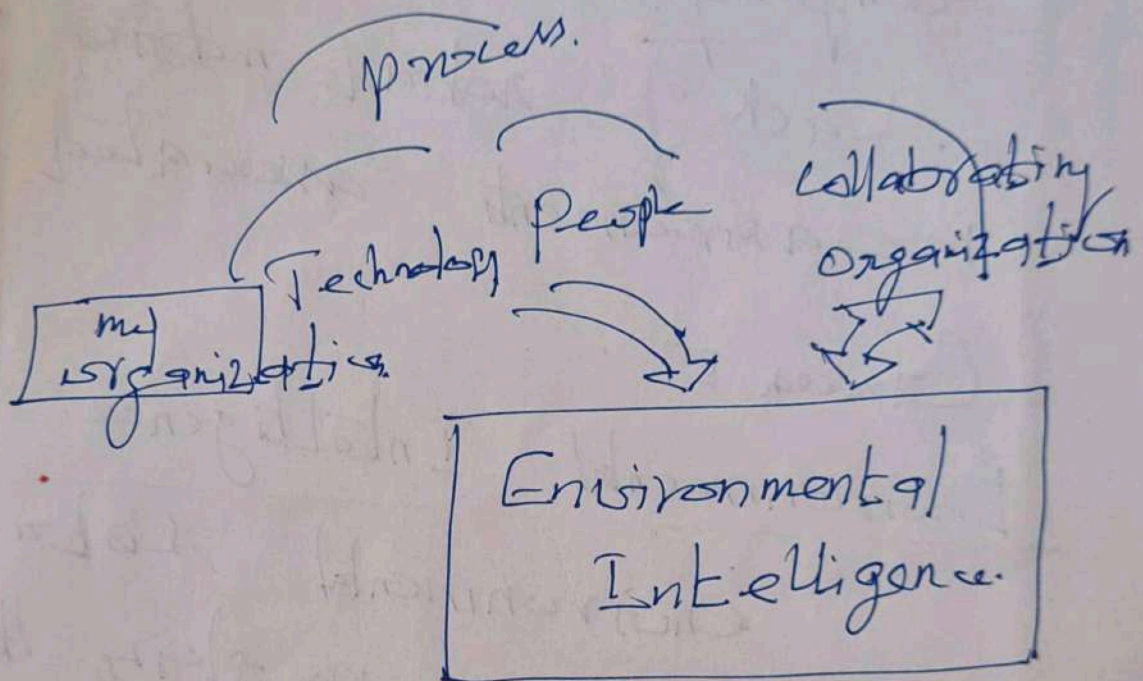 process.
People
Technology
Collabrating
organization
my
organization
Environmental
Intelligence.